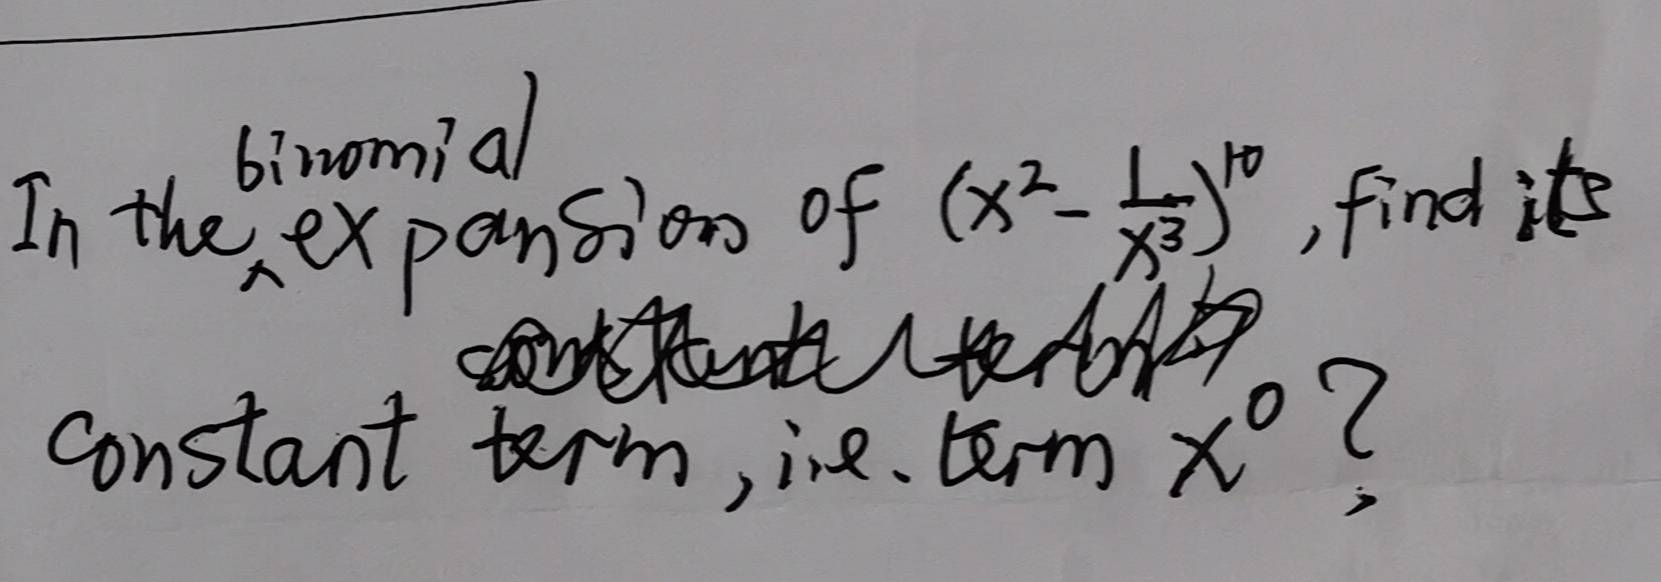 In the binomial expansion of (x² - 1/x³)¹⁰, find its
constant term, i.e. term x⁰?